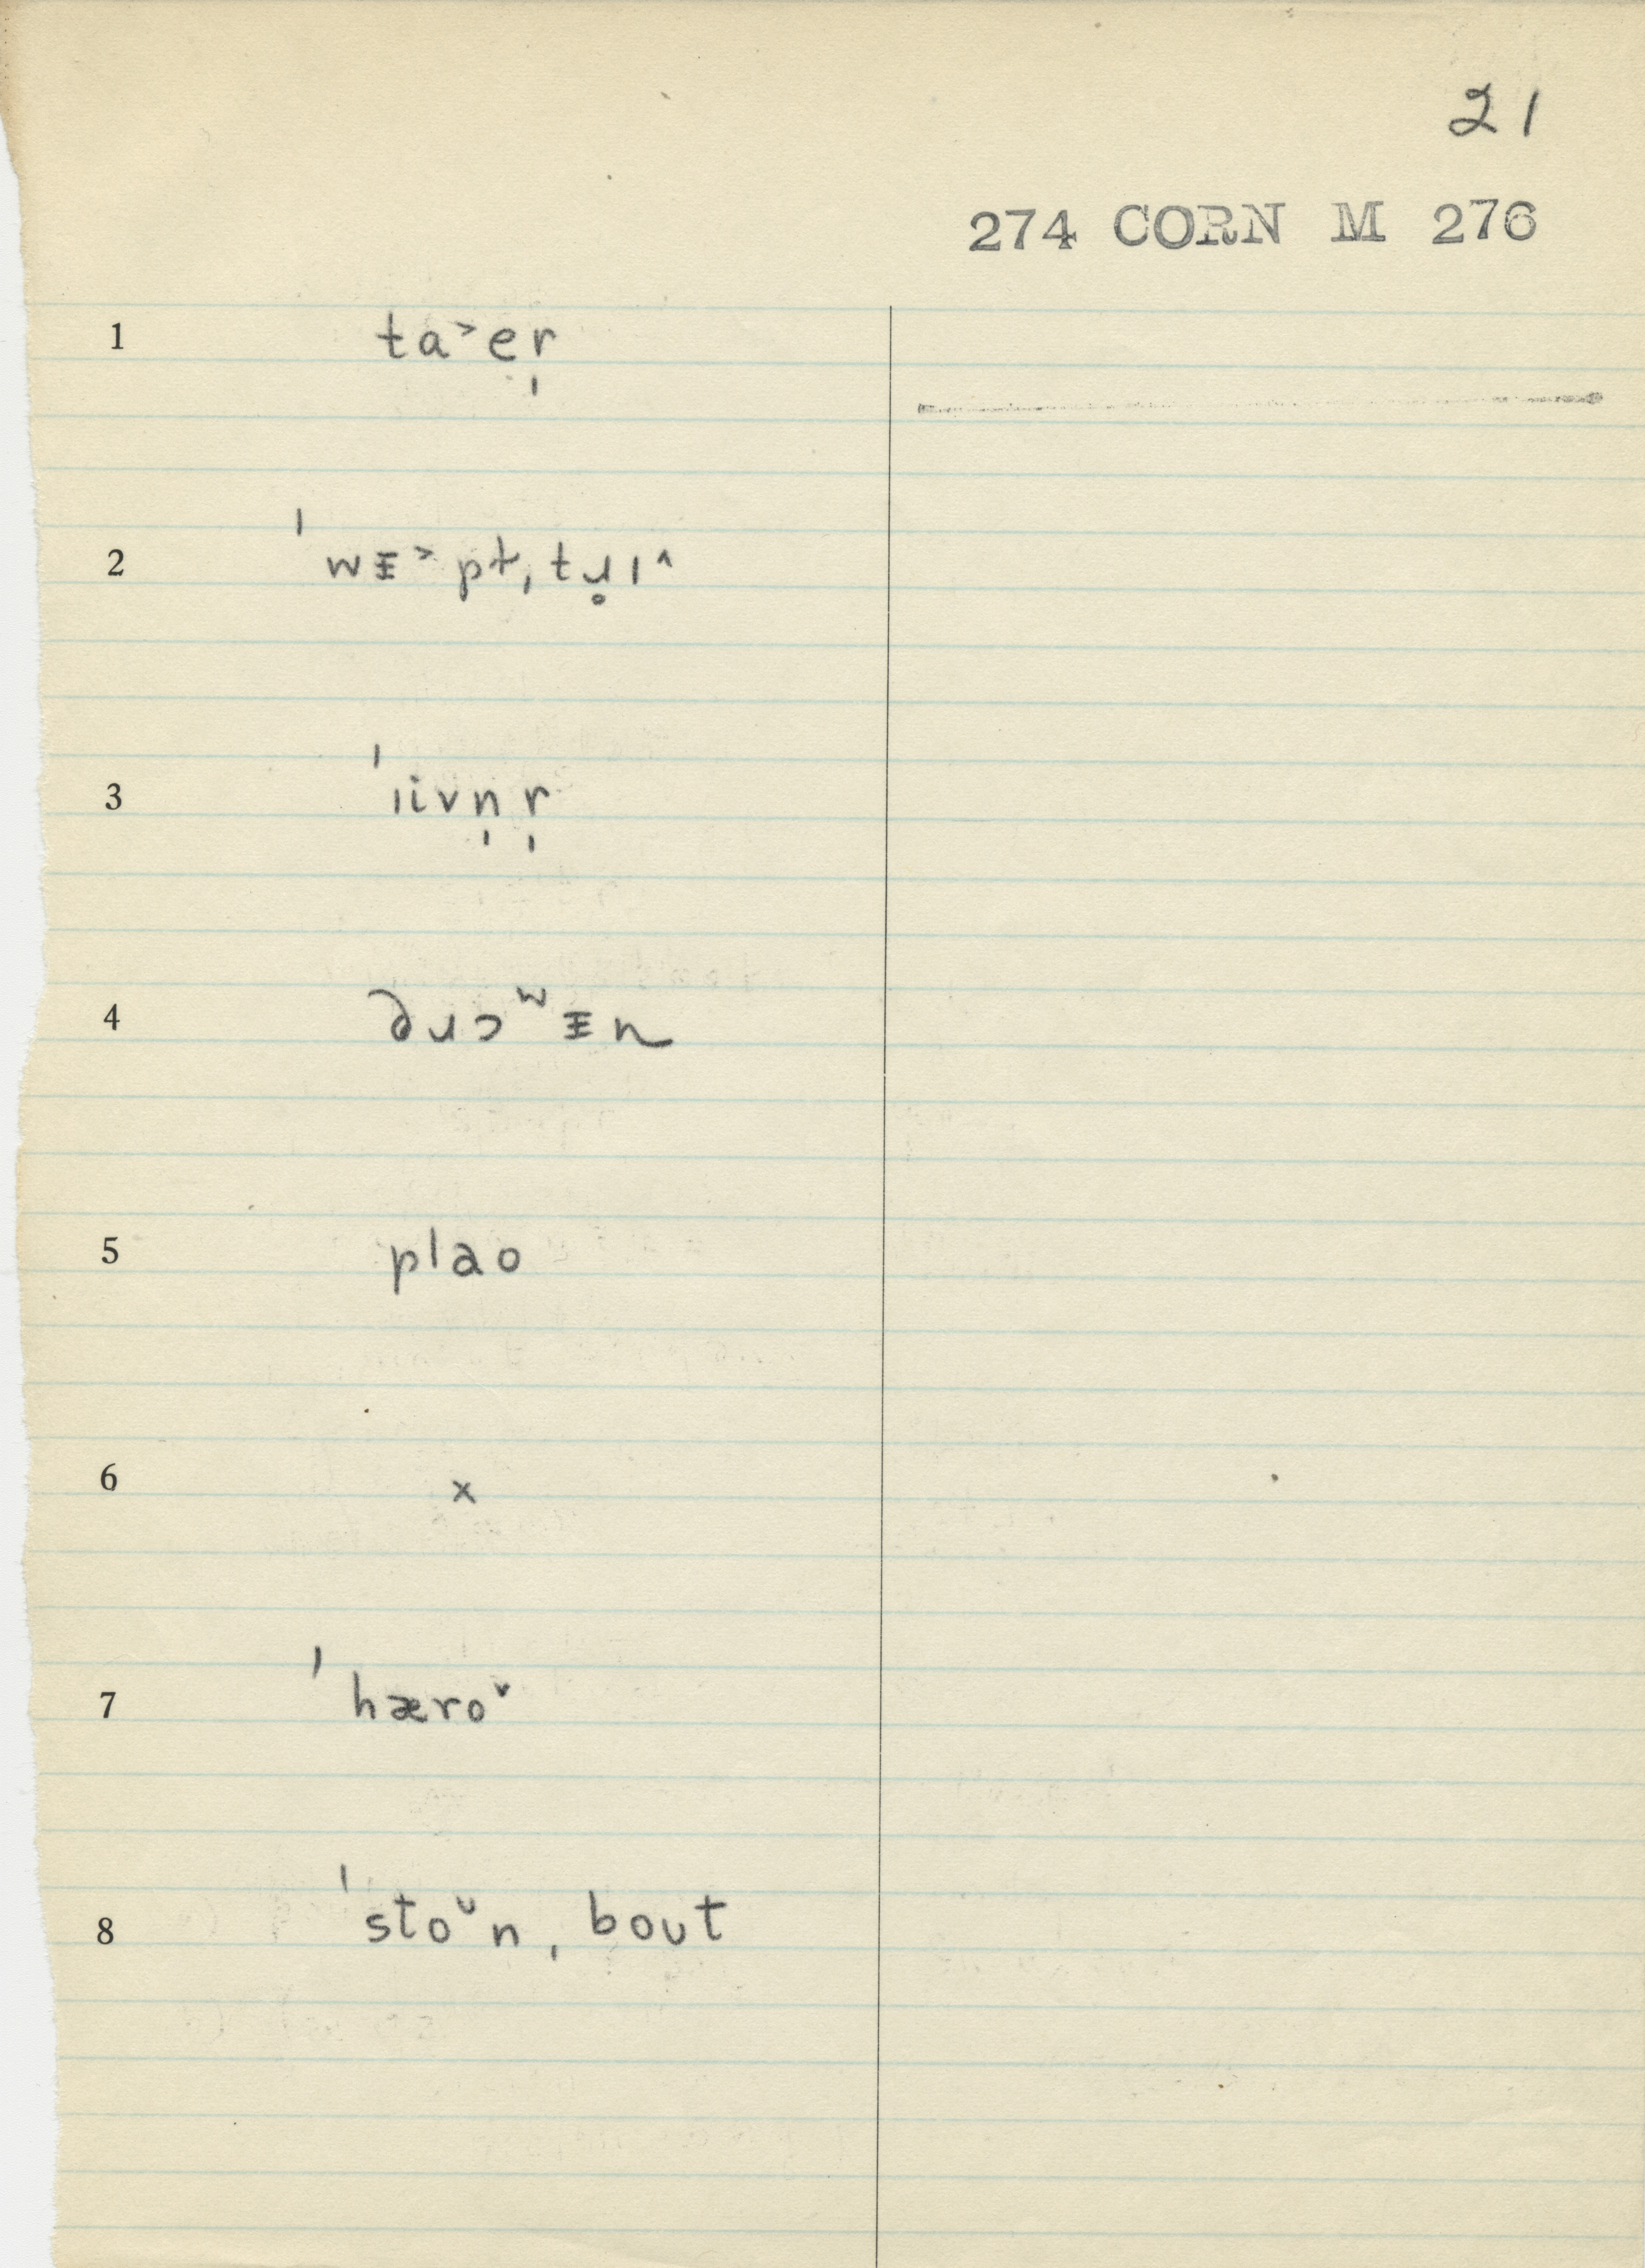 21
274 CORN M 276
1 ta˃er̩
2 ˈwᵻ˃pt, tɹ̥ɪ˄
3 ˈɪivn̩r̩
4 ðɹɔʷᵻn
5 plao
6 x
7 ˈhæro˅
8 ˈstoᶷn, boʊt